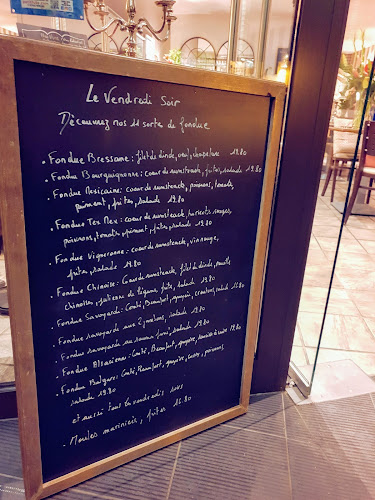 Le Vendredi Soir
Découvrez nos 11 sorte de fondue
. Fondue Bressane: filet de dinde, oeuf, chapelure 19.80
. Fondue Bourguignonne: coeur de rumstoack, frites, salade 19.80
. Fondue Mexicaine: coeur de rumsteack, poivrons, tomate,
piment, frites, salade 19.80
. Fondue Tex Mex: coeur de rumsteack, haricots rouges,
poivrons, tomate, piment, frites, salade 19.80
. Fondue Vigneronne: coeur de rumsteack, vin rouge,
frites, salade 19.80
. Fondue Chinoise: Coeur de rumsteack, filet de dinde, nouilles
chinoises, frites, salade 19.80
. Fondue Savoyarde: Comté, Beaufort, gruyère, croutons, salade
. Fondue savoyarde aux salade 19.80
. Fondue savoyarde au salade 19.80
. Fondue Alsacienne: Comté, Beaufort, gruyère, 19.80
. Fondue Bulgare: Comté, Beaufort, gruyère, poivrons,
salade 19.80
et aussi tous les vendredis soirs
- Moules marinière, frites 16.80